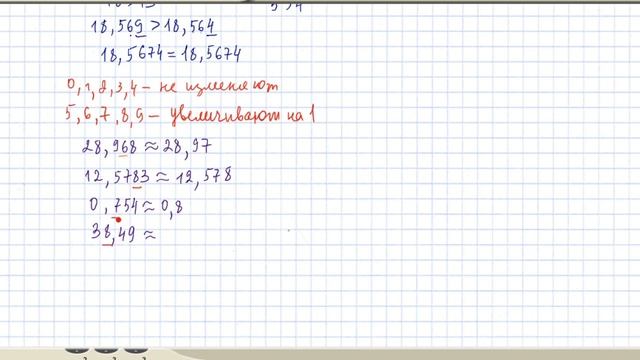 18,569 > 18,564
18,5674 = 18,5674
0,1,2,3,4 – не изменяют
5,6,7,8,9 – увеличивают на 1
28,968 ≈ 28,97
12,5783 ≈ 12,578
0,754 ≈ 0,8
38,49 ≈